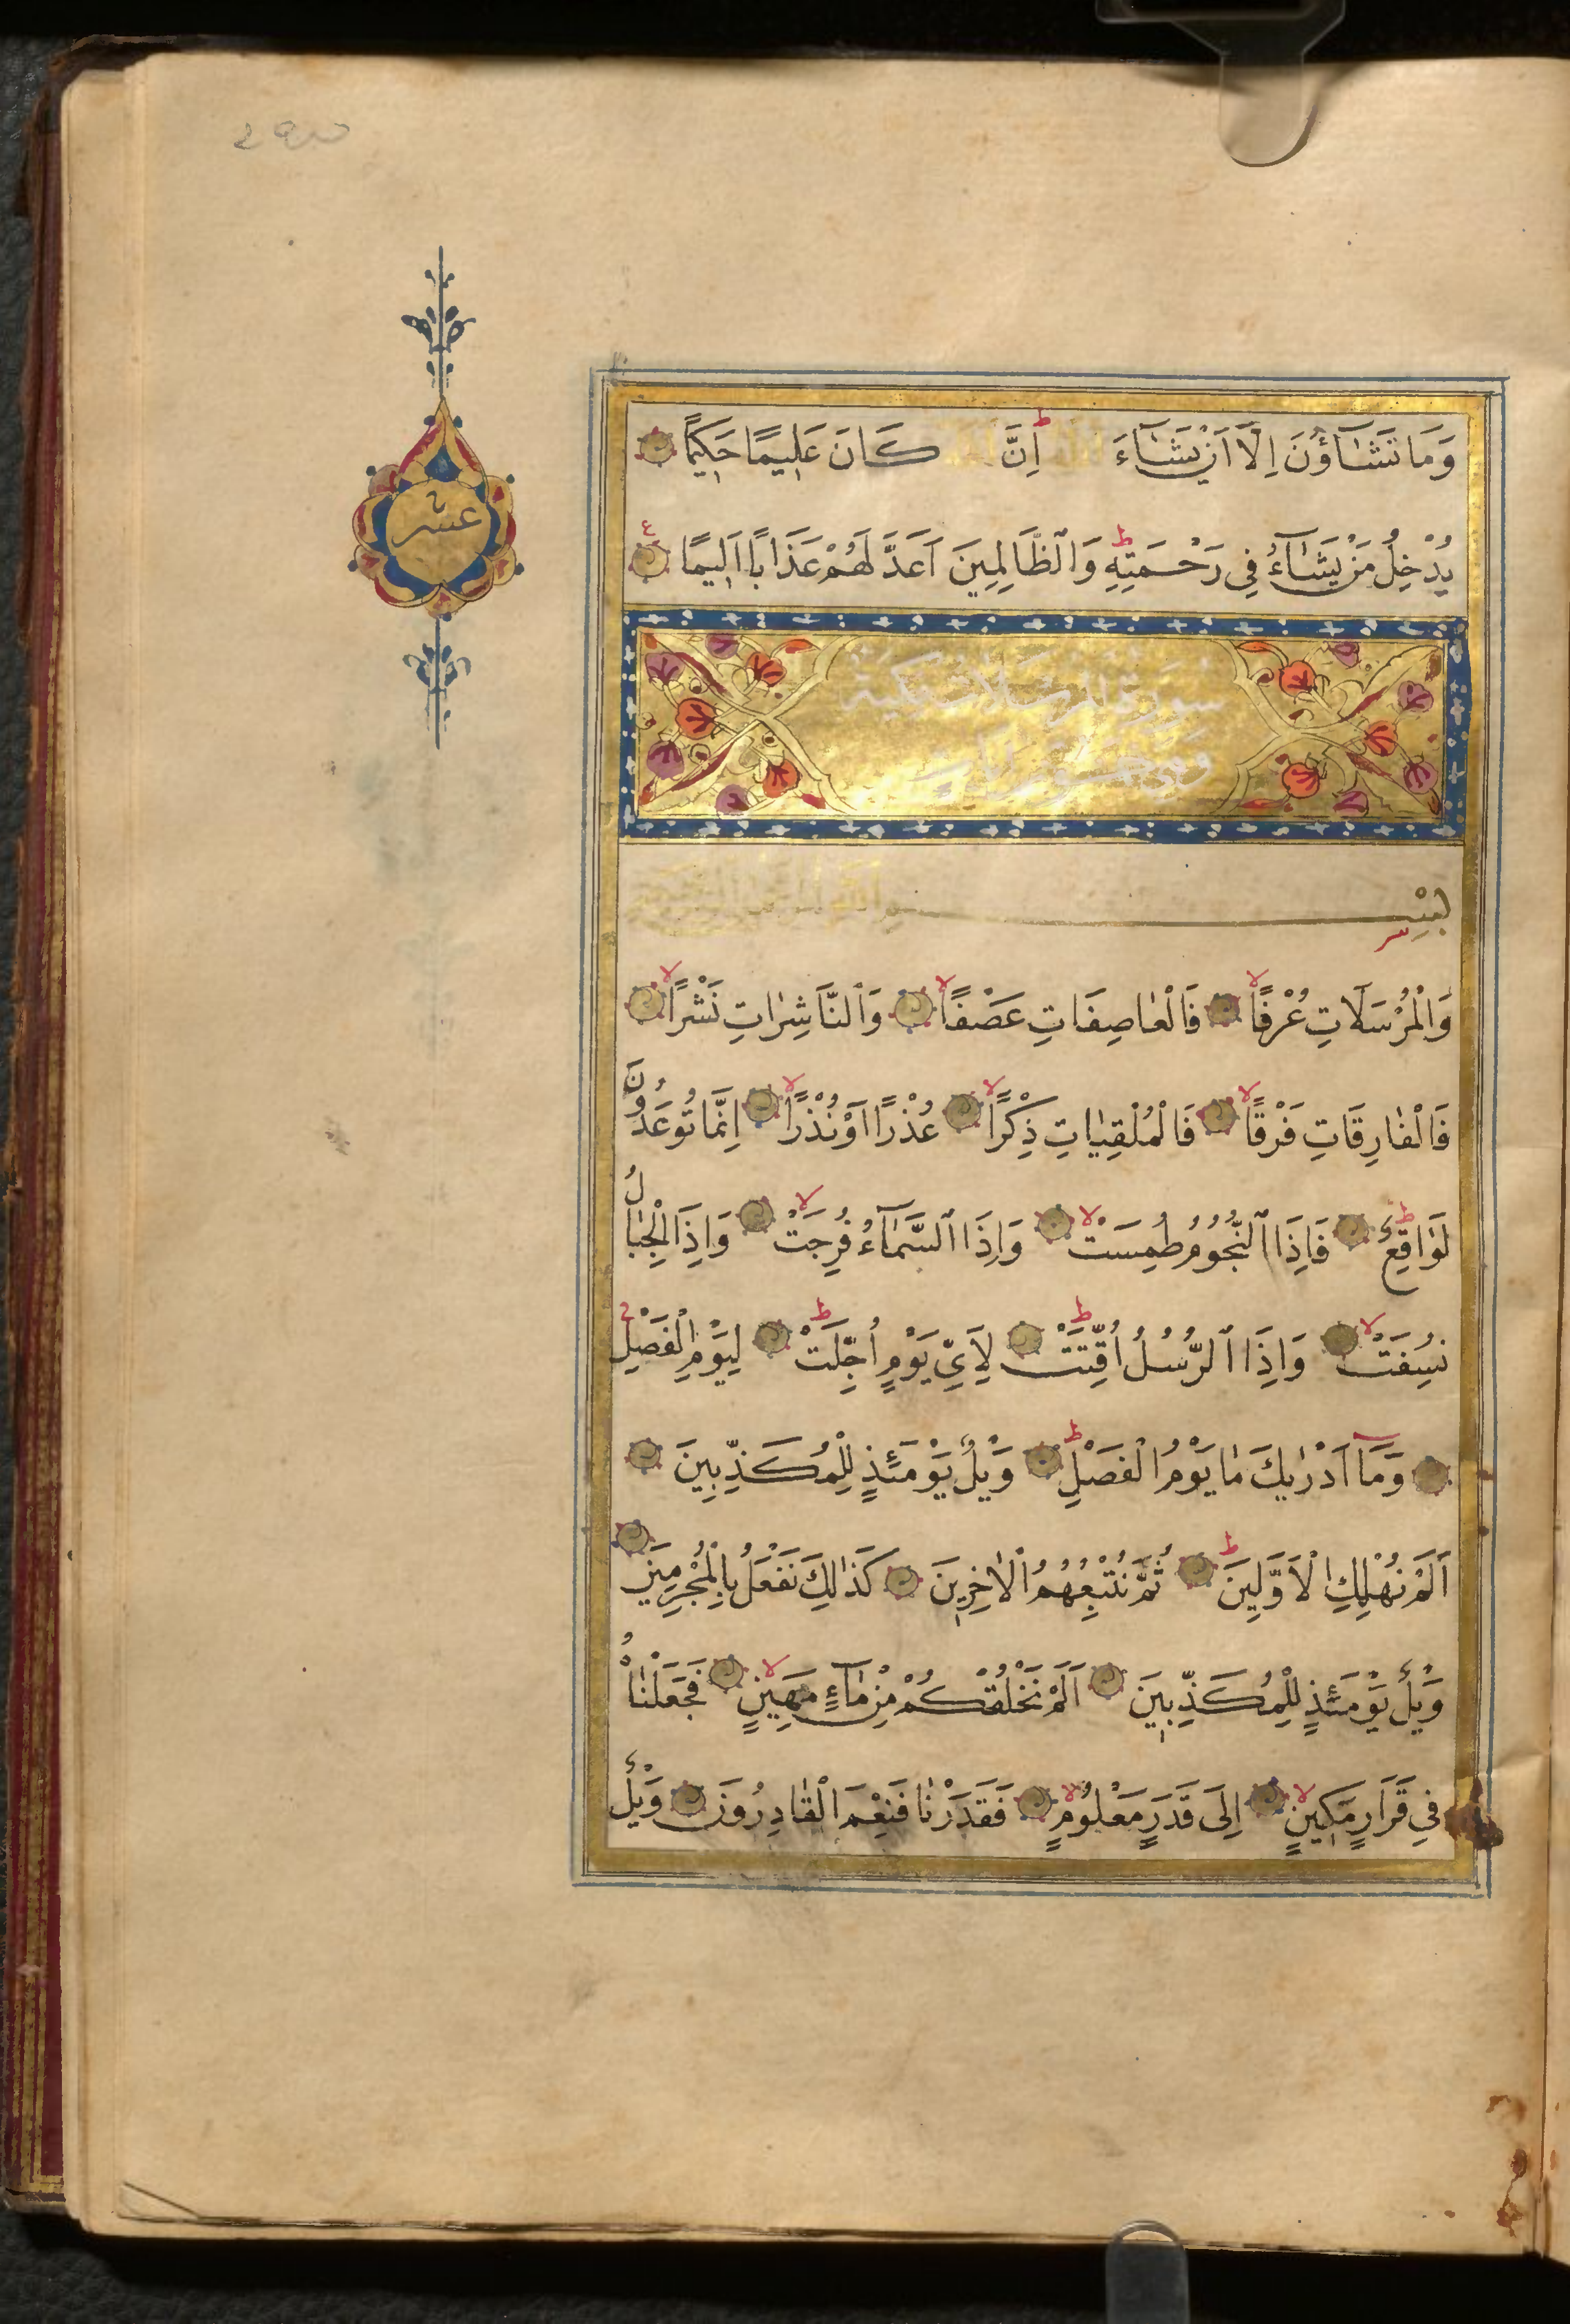 عشر
وَمَا تَشَٓاؤُنَ اِلَّٓا اَنْ يَشَٓاءَ اللّٰهُ اِنَّ اللّٰهَ كَانَ عَلِيمًا حَكِيمًا
يُدْخِلُ مَنْ يَشَٓاءُ فِى رَحْمَتِهِ وَالظَّالِمِينَ اَعَدَّ لَهُمْ عَذَابًا اَلِيمًا
سورة المرسلات مكية
وهي خمسون
بِسْمِ اللّٰهِ الرَّحْمٰنِ الرَّحِيمِ
وَالْمُرْسَلَاتِ عُرْفًا فَالْعَاصِفَاتِ عَصْفًا وَالنَّاشِرَاتِ نَشْرًا
فَالْفَارِقَاتِ فَرْقًا فَالْمُلْقِيَاتِ ذِكْرًا عُذْرًا اَوْ نُذْرًا اِنَّمَا تُوعَدُونَ
لَوَاقِعٌ فَاِذَا النُّجُومُ طُمِسَتْ وَاِذَا السَّمَٓاءُ فُرِجَتْ وَاِذَا الْجِبَالُ
نُسِفَتْ وَاِذَا الرُّسُلُ اُقِّتَتْ لِاَىِّ يَوْمٍ اُجِّلَتْ لِيَوْمِ الْفَصْلِ
وَمَٓا اَدْرٰيكَ مَا يَوْمُ الْفَصْلِ وَيْلٌ يَوْمَئِذٍ لِلْمُكَذِّبِينَ
اَلَمْ نُهْلِكِ الْاَوَّلِينَ ثُمَّ نُتْبِعُهُمُ الْاٰخِرِينَ كَذَالِكَ نَفْعَلُ بِالْمُجْرِمِينَ
وَيْلٌ يَوْمَئِذٍ لِلْمُكَذِّبِينَ اَلَمْ نَخْلُقْكُمْ مِنْ مَٓاءٍ مَهِينٍ فَجَعَلْنَاهُ
فِى قَرَارٍ مَكِينٍ اِلَى قَدَرٍ مَعْلُومٍ فَقَدَرْنَا فَنِعْمَ الْقَادِرُونَ وَيْلٌ